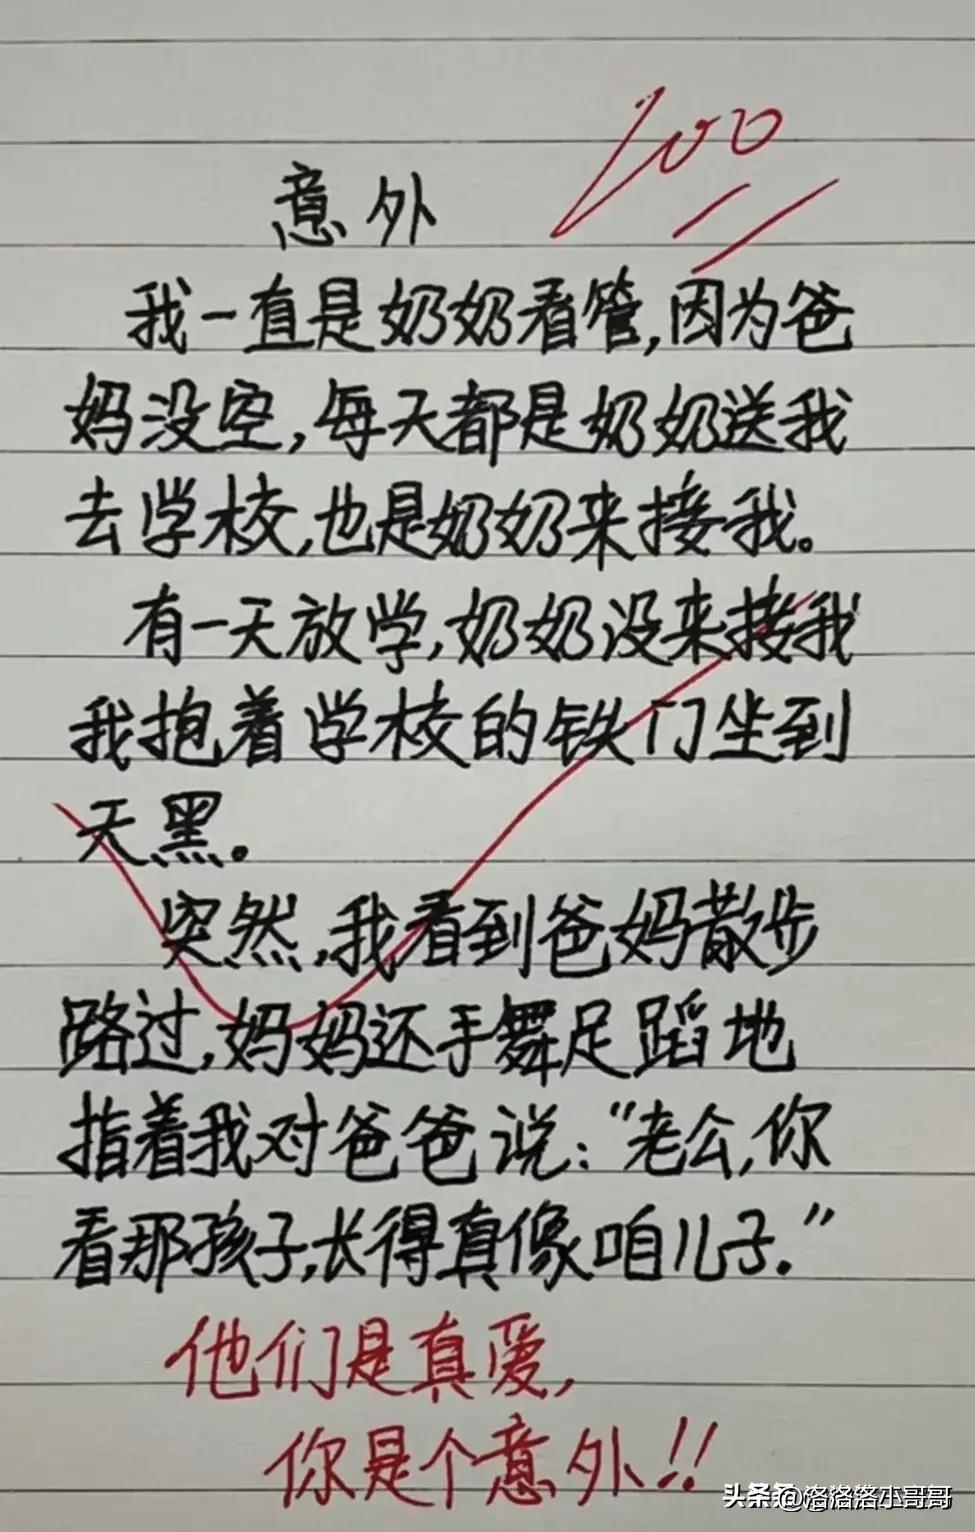 100
意外
我一直是奶奶看管,因为爸
妈没空,每天都是奶奶送我
去学校,也是奶奶来接我。
有一天放学,奶奶没来接我
我抱着学校的铁门坐到
天黑。
突然,我看到爸妈散步
路过,妈妈还手舞足蹈地
指着我对爸爸说:“老公,你
看那孩子,长得真像咱儿子.”
他们是真爱,
你是个意外!!
头条 @洛洛洛小哥哥